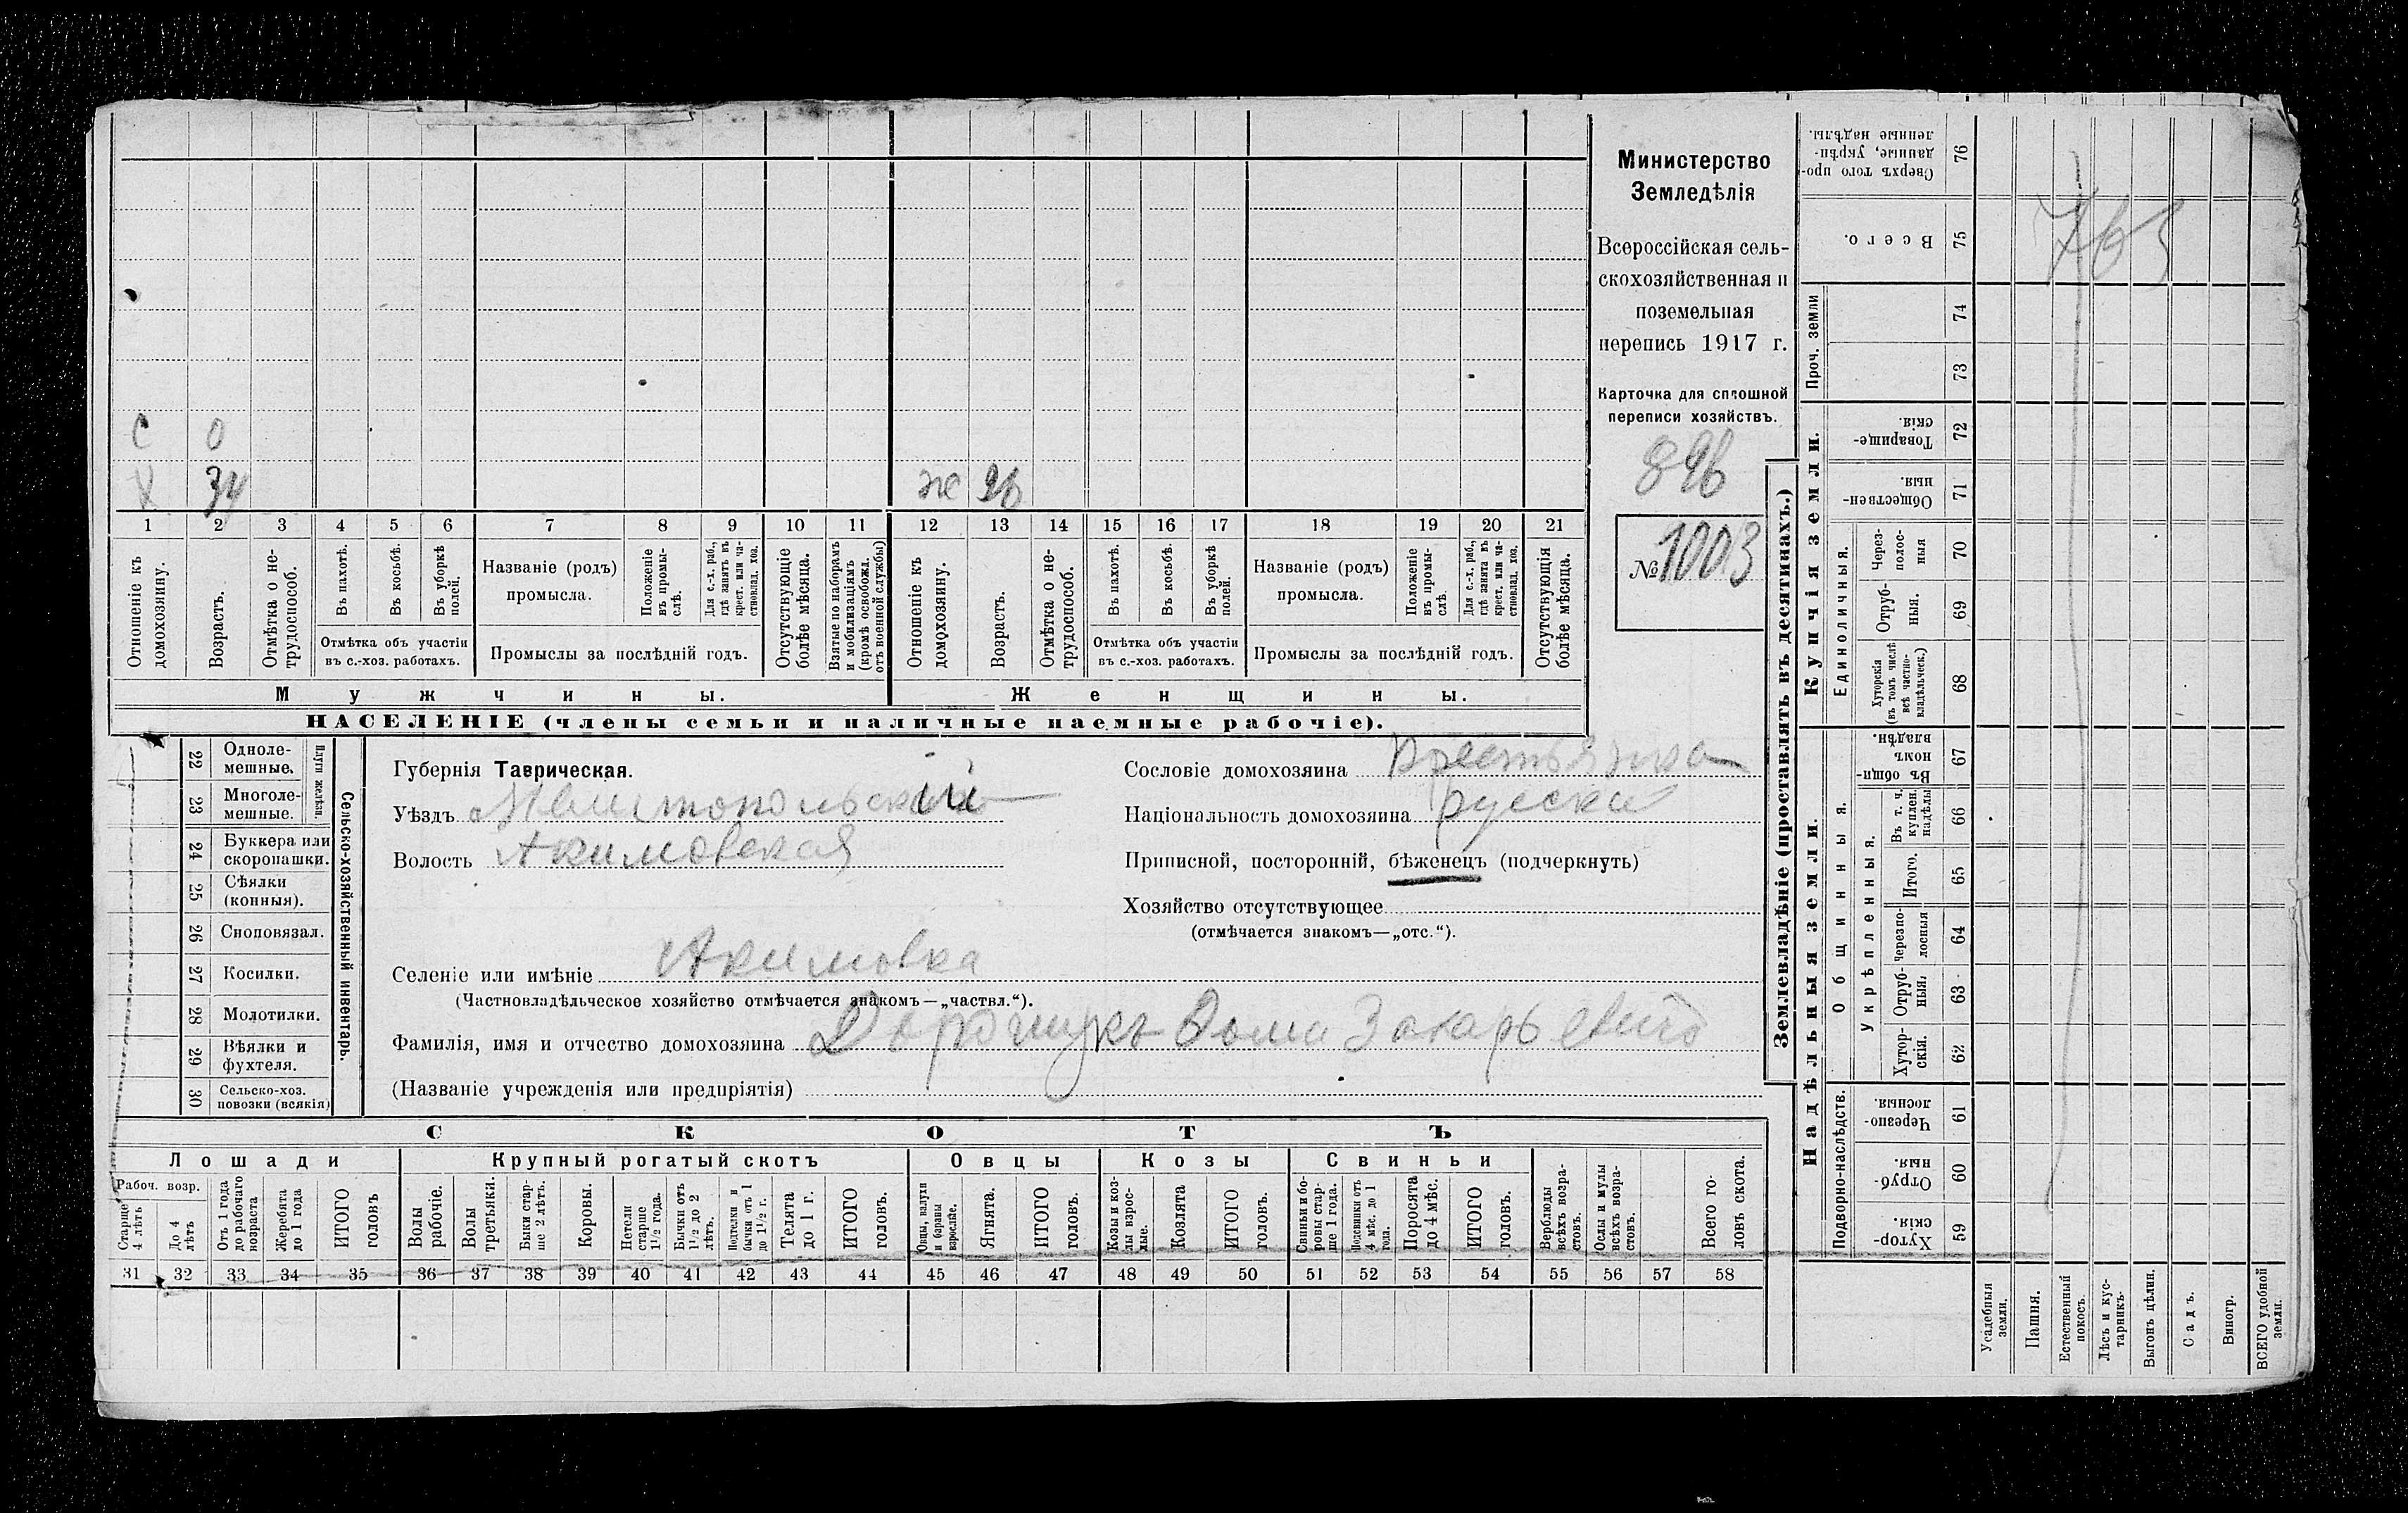 с 0
х 34 ж 26
1 2 3 4 5 6 7 8 9 10 11 12 13 14 15 16 17 18 19 20 21
Отношеніе къ домохозяину.
Возрастъ.
Отмѣтка о не-трудоспособ.
Въ пахотѣ.
Въ косьбѣ.
Въ уборкѣ полей.
Отмѣтка объ участіи въ с.-хоз. работахъ.
Названіе (родъ) промысла.
Положеніе въ промы-слѣ.
Для с.-х. раб., гдѣ занятъ въ крест. или ча-стновлад. хоз.
Промыслы за послѣдній годъ.
Отсутствующіе болѣе мѣсяца.
Взятые по наборамъ и мобилизаціямъ (кромѣ освобожд. отъ военной службы)
Отношеніе къ домохозяину.
Возрастъ.
Отмѣтка о не-трудоспособ.
Въ пахотѣ.
Въ косьбѣ.
Въ уборкѣ полей.
Отмѣтка объ участіи въ с.-хоз. работахъ.
Названіе (родъ) промысла.
Положеніе въ промы-слѣ.
Для с.-х. раб., гдѣ занята въ крест. или ча-стновлад. хоз.
Промыслы за послѣдній годъ.
Отсутствующія болѣе мѣсяца.
Мужчины. Женщины.
НАСЕЛЕНІЕ (члены семьи и наличные наемные рабочіе).
Министерство
Земледѣлія
Всероссійская сель-
скохозяйственная и
поземельная
перепись 1917 г.
Карточка для сплошной
переписи хозяйствъ.
896
№ 1003
22 Одноле-мешные.
23 Многоле-мешные.
Плуги желѣзн.
24 Буккера или скоропашки.
25 Сѣялки (конныя).
26 Сноповязал.
27 Косилки.
28 Молотилки.
29 Вѣялки и фухтеля.
30 Сельско-хоз. повозки (всякія)
Сельско-хозяйственный инвентарь.
Губернія Таврическая.
Уѣздъ Мелитопольскій
Волость Акимовская
Сословіе домохозяина
Національность домохозяина русскій
Приписной, посторонній, бѣженецъ (подчеркнуть)
Хозяйство отсутствующее
(отмѣчается знакомъ—„отс.“).
Селеніе или имѣніе Акимовка
(Частновладѣльческое хозяйство отмѣчается знакомъ—„частвл.“).
Фамилія, имя и отчество домохозяина Захарьевичъ
(Названіе учрежденія или предпріятія)
СКОТЪ
Лошади Крупный рогатый скотъ Овцы Козы Свиньи
Рабоч. возр.
Старше 4 лѣтъ
До 4 лѣтъ
Отъ 1 года до рабочаго возраста
Жеребята до 1 года
ИТОГО головъ
Волы рабочіе.
Волы третьяки.
Быки стар-ше 2 лѣтъ.
Коровы.
Нетели старше 1½ года.
Бычки отъ 1½ до 2 лѣтъ.
Подтелки и бычки отъ 1 до 1½ г.
Телята до 1 г.
ИТОГО головъ.
Овцы, валухи и бараны взрослые.
Ягнята.
ИТОГО головъ.
Козы и коз-лы взрос-лые.
Козлята
ИТОГО головъ.
Свиньи и бо-ровы стар-ше 1 года.
Подсвинки отъ 4 мѣс. до 1 года.
Поросята до 4 мѣс.
ИТОГО головъ.
Верблюды всѣхъ возра-стовъ.
Ослы и мулы всѣхъ возра-стовъ.
Всего го-ловъ скота.
31 32 33 34 35 36 37 38 39 40 41 42 43 44 45 46 47 48 49 50 51 52 53 54 55 56 57 58
Землевладѣніе (проставлять въ десятинахъ.)
Сверхъ того про-данные, укрѣп-ленные надѣлы. 76
Всего. 75
Проч. земли 74
73
Купчія земли.
Товарище-скія. 72
Обществен-ныя. 71
Единоличныя.
Через-полос-ныя 70
Отруб-ныя. 69
Хуторскія (въ томъ числѣ всѣ частно-владѣльческ.) 68
Надѣльныя земли.
Общинныя.
Въ общи-номъ владѣн. 67
Укрѣпленныя.
Въ т. ч. куплен. надѣлы 66
Итого. 65
Черезпо-лосныя 64
Отруб-ныя. 63
Хутор-скія. 62
Подворно-наслѣдств.
Черезпо-лосныя. 61
Отруб-ныя. 60
Хутор-скія. 59
Усадебныя земли.
Пашня.
Естественный покосъ.
Лѣсъ и кус-тарникъ
Выгонъ цѣлин.
Садъ.
Виногр.
ВСЕГО удобной земли.